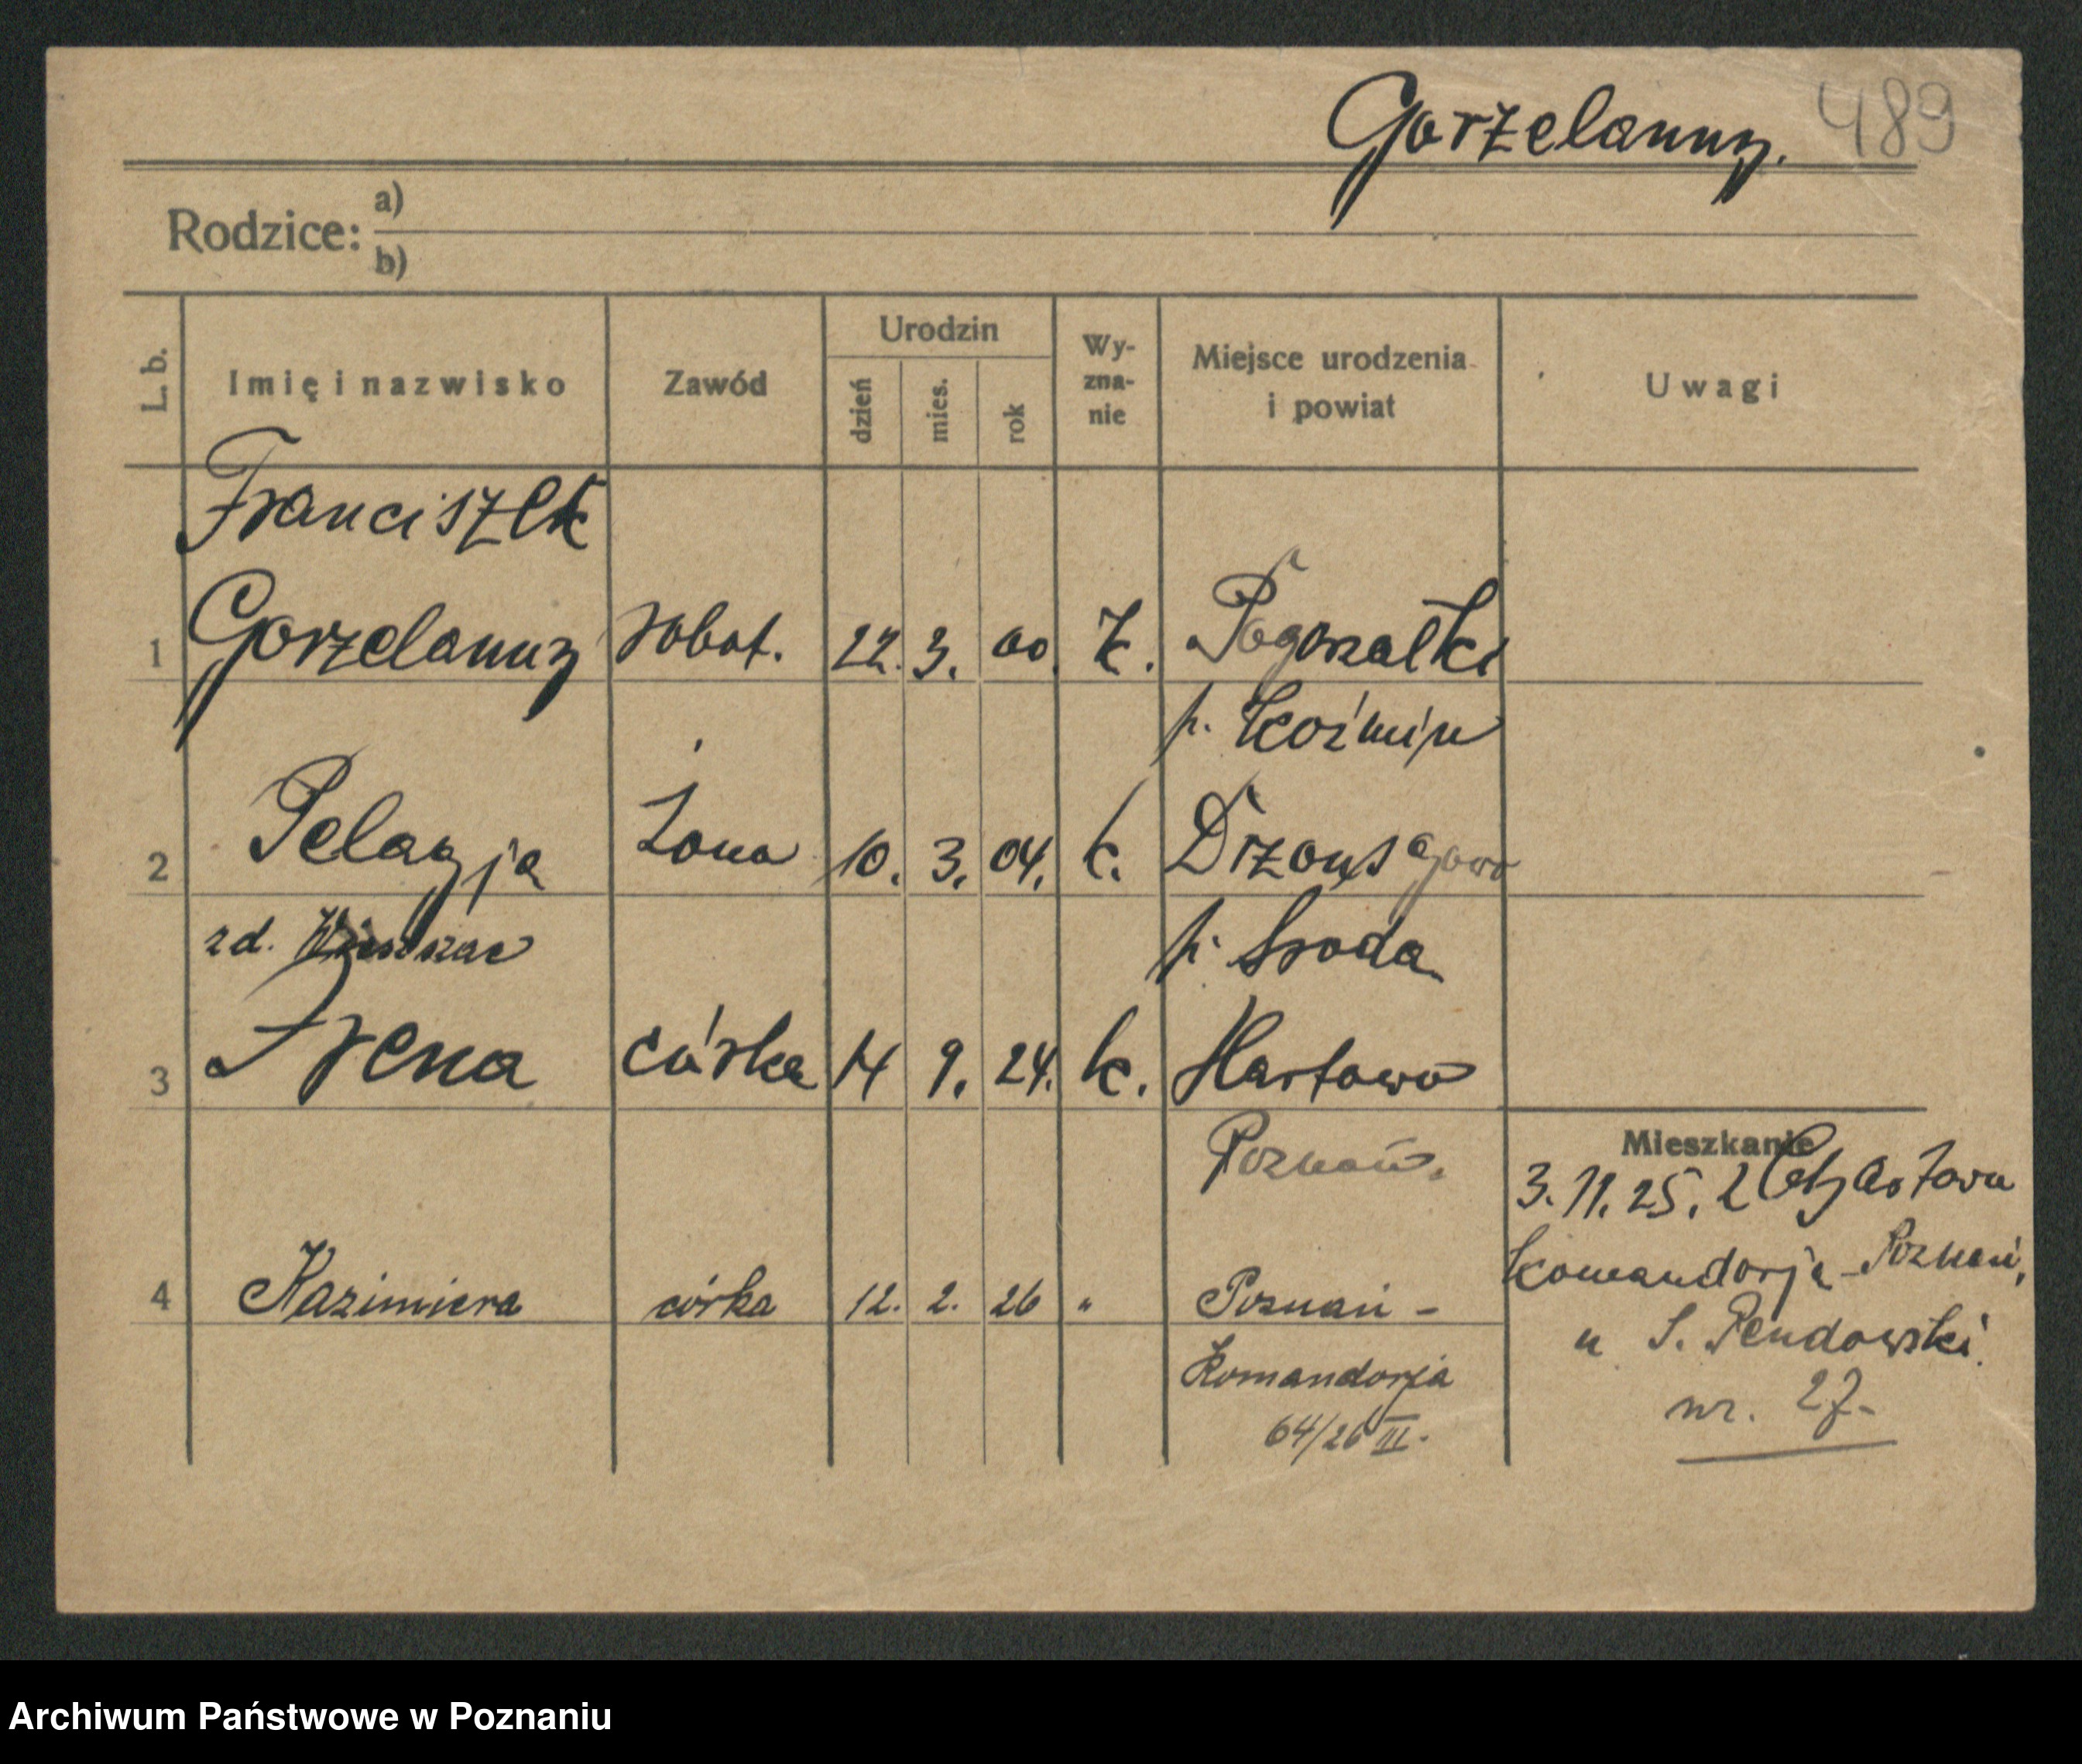 Gorzelanny. 489
Rodzice: a)
b)
L. b. Imię i nazwisko Zawód Urodzin dzień mies. rok Wy-zna-nie Miejsce urodzenia i powiat Uwagi
Franciszek
1 Gorzelanny robot. 22. 3. 00. k. Pogorzałki
p. Koźmin
2 Pelagja żona 10. 3. 04. k.
zd. p. Środa
3 Irena córka 14 9. 24. k. Hartowo
Poznań.
Mieszkanie
3. 11. 25. z
Komandorja - Poznań,
4 Kazimiera córka 12. 2. 26 " Poznań -
u S. Pendowski
Komandorja
nr. 27-
64/26 III.
Archiwum Państwowe w Poznaniu